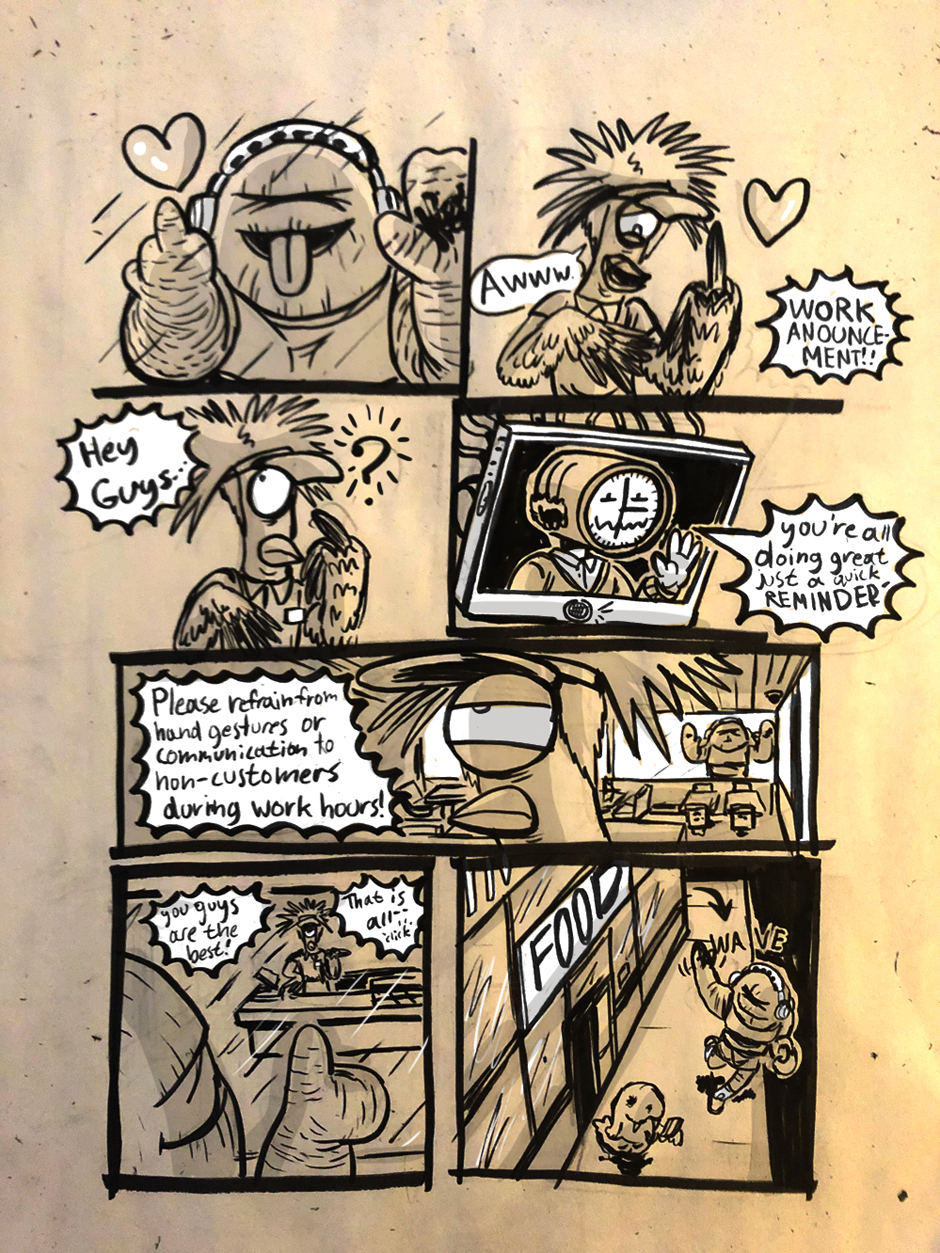 Awww.
WORK
ANOUNCE-
MENT!!
Hey
Guys...
?
you're all
doing great
just a quick
REMINDER
Please refrain from
hand gestures or
communication to
non-customers
during work hours!
you guys
are the
best!
That is
all--
click
FOOD
WAVE